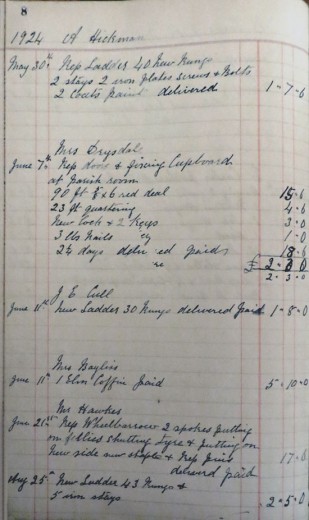 8
1924 A Hickman
May 30th Rep Ladder 40 New Rungs
2 stays 2 iron plates screws & Bolts
2 Coats paint delivered 1-7-6
Mrs Drysdal
June 7th Rep door & fixing Cupboard
at Parish room
90 ft 6 red deal 15-6
23 ft quartering 4-6
New Lock & 2 Keys 3-0
3 lbs Nails 1-0
2¼ days paid 18-6
£ 2-3-0
2-3-0
J E Cull
June 11th New Ladder 30 Rungs delivered Paid 1-8-0
Mrs Bayliss
June 11th 1 Elm Coffin paid 5-10-0
Mr Hawkes
June 21st Rep Wheelbarrow 2 spokes putting
on fellies shutting tyre & putting on
New side new staple & Rep 17-6
delivered paid
Aug 25th New Ladder 43 Rungs &
5 iron stays 2-5-0